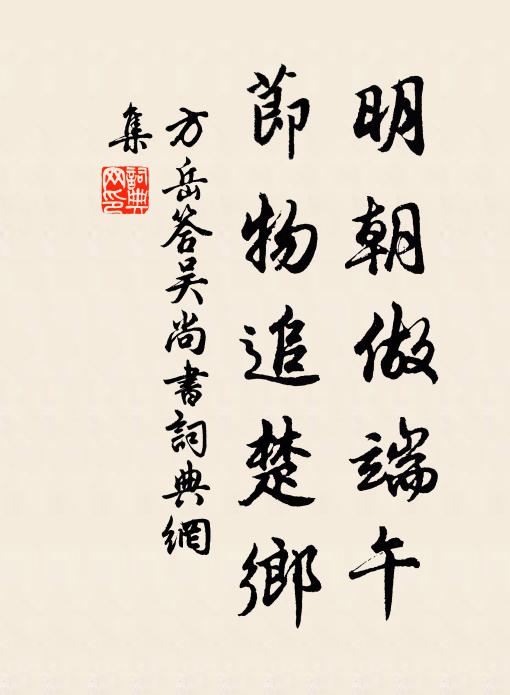 明朝做端午
節物追楚鄉
方岳答吴尚書詞典網
集
詞典
网印